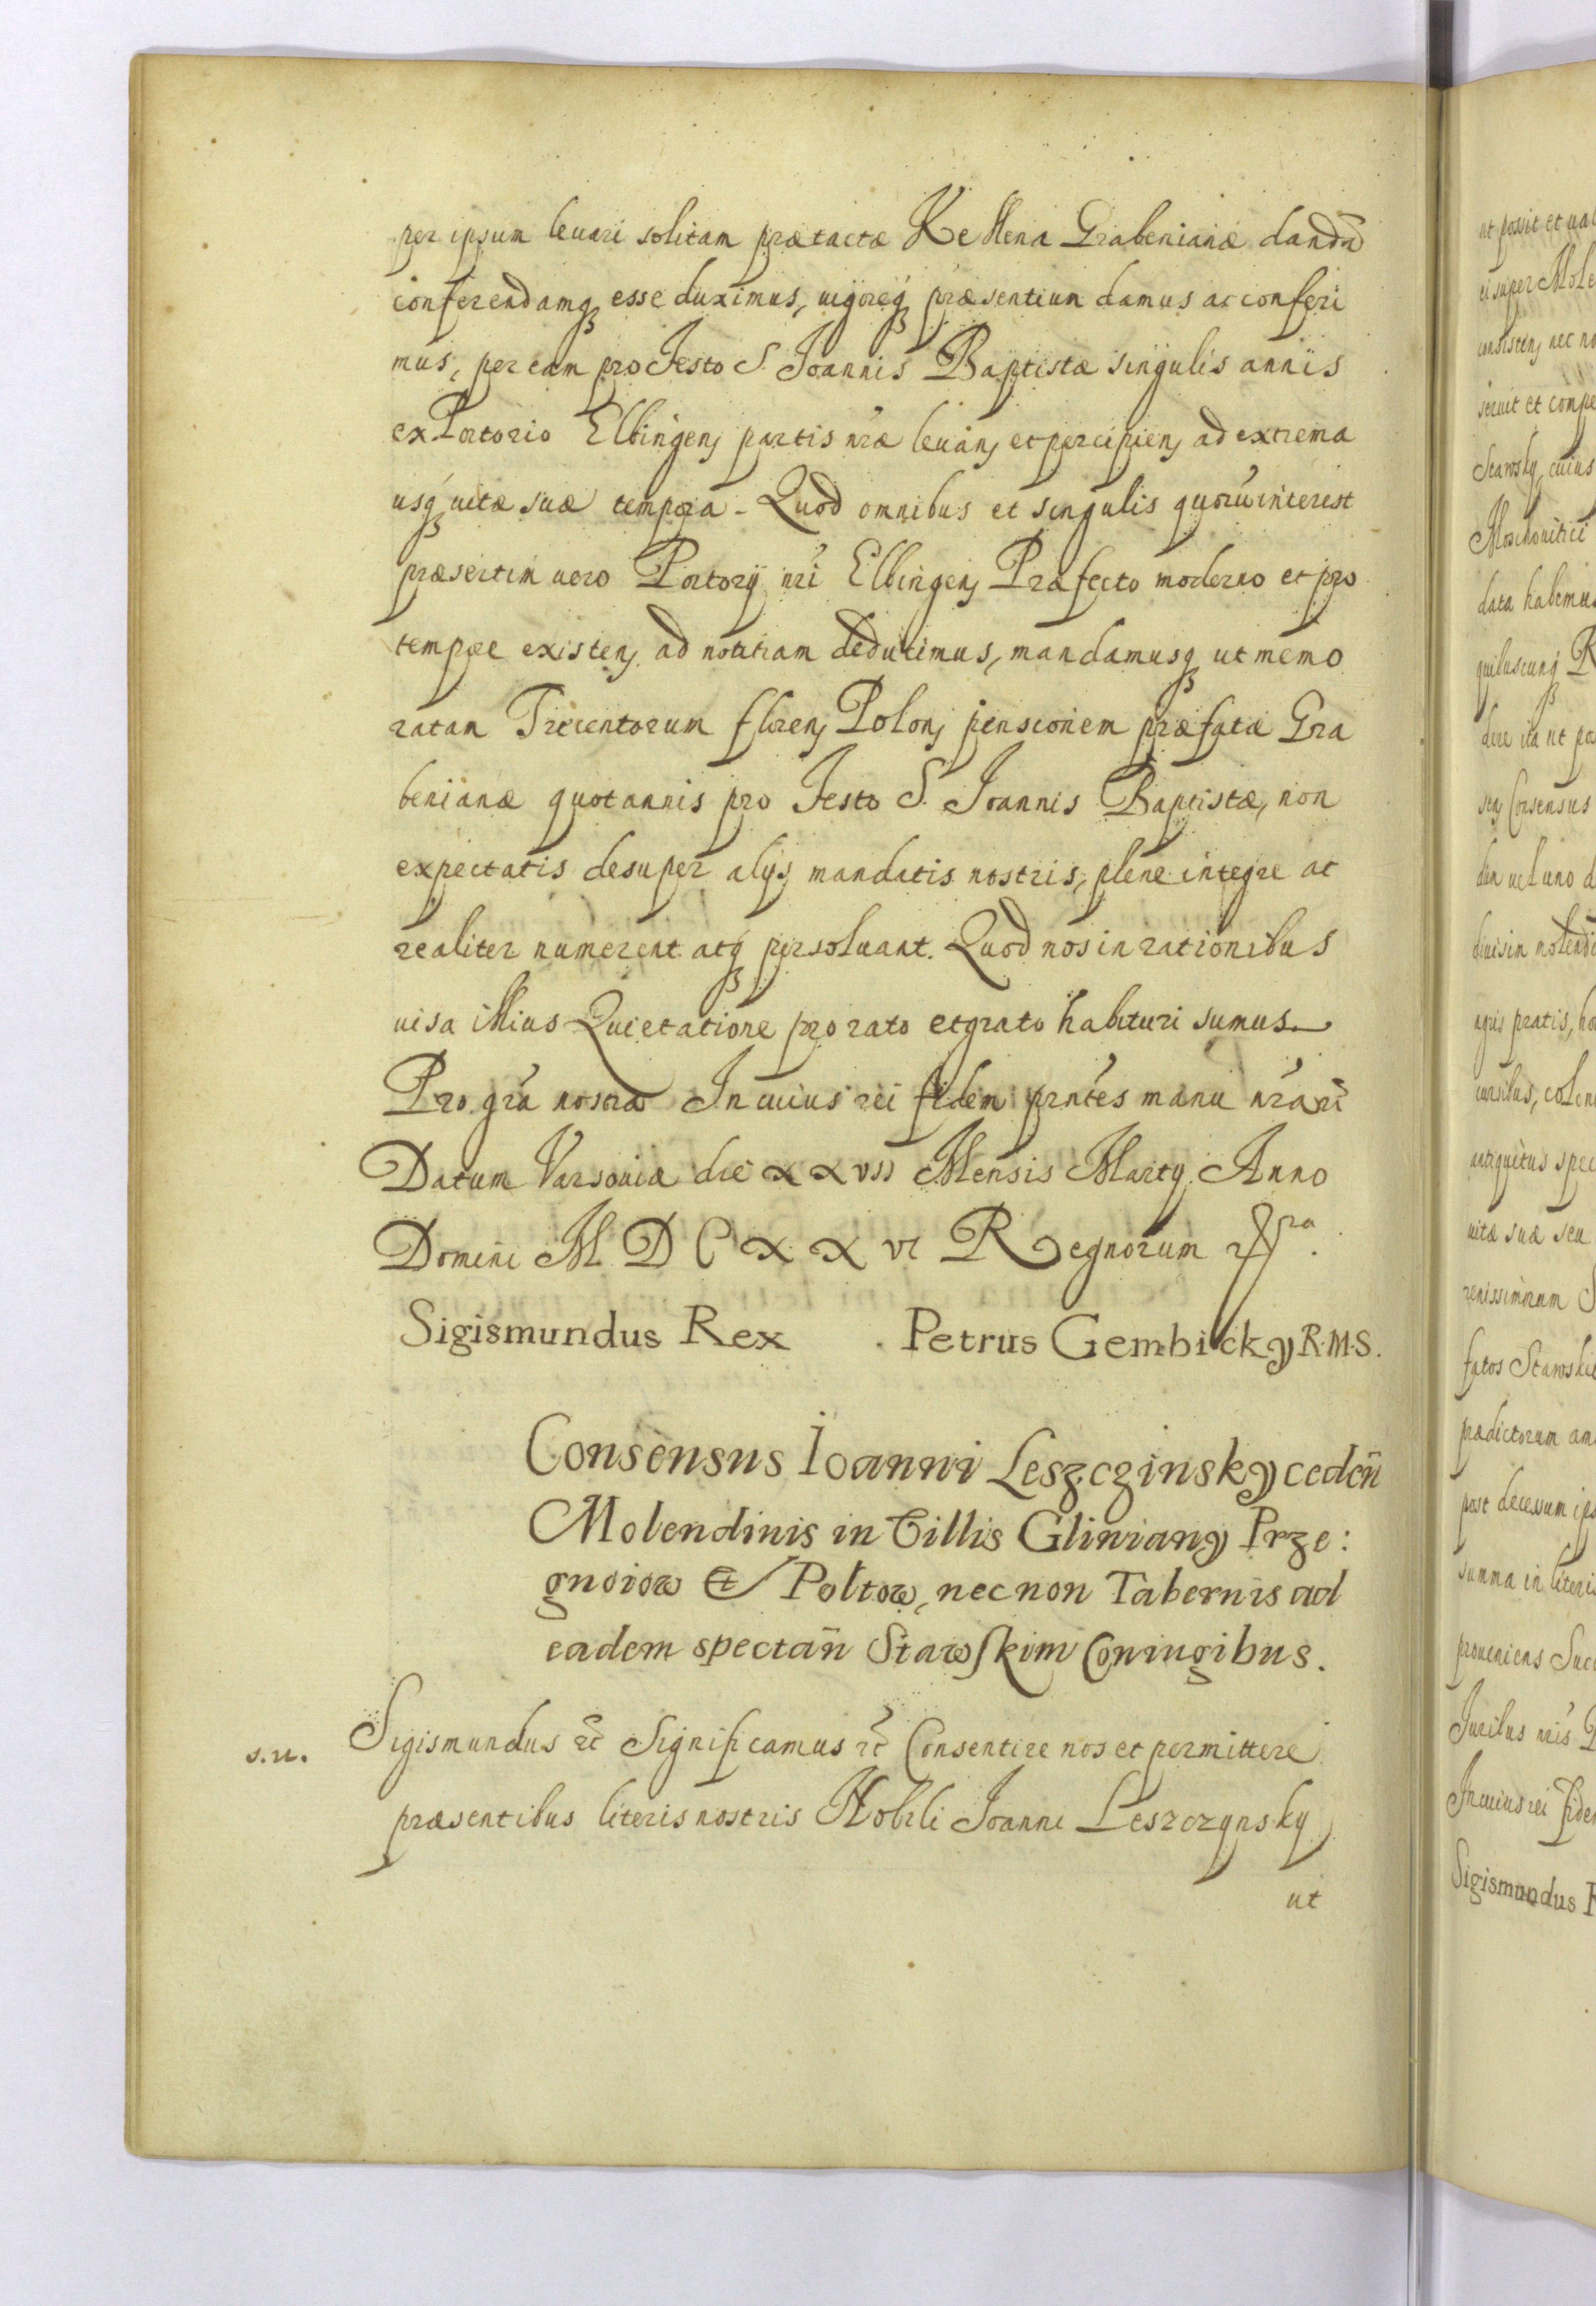 per ipsum leuari solitam prætactæ Kellena Grabenianæ dandā
conferendamq́ꝫ esse duximus, uigoreq́ꝫ præsentium damus ac conferi
mus, per eam pro Festo S. Joannis Baptistæ singulis annis
ex Portorio Elbingenȷ partis nr̃æ leuanȷ et percipienȷ ad extrema
usq́ꝫ uitæ suæ tempora. Quod omnibus et singulis quorũ interest
præsertim uero Portorÿ nr̃i Elbingenȷ Præfecto moderno et pro
tempore existenȷ ad notitiam deducimus, mandamusq́ꝫ ut memo
ratam Trecentorum florenȷ Polonȷ pensionem præfatæ Gra
benianæ quotannis pro Festo S. Joannis Baptistæ, non
expectatis desuper alÿs mandatis nostris, plene integre ac
realiter numerent atq́ꝫ persoluant. Quod nos in rationibus
uisa illius Quietatione pro rato et grato habituri sumus.
Pro gr̃a nostra In cuius rei fidem prñtes manu nr̃a r̃c
Datum Varsouiæ die XXVII Mensis Martÿ Anno
Domini M D C X X VI Regnorum ut supra.
Sigismundus Rex Petrus Gembicky R.M.S.
Consensus Ioanni Leszczinsky cedeñ
Molendinis in Villis Gliniany Prze:
gnoiow Et Poltow, necnon Tabernis ad
eadem spectañ Stawskim Coniugibus.
s.n. Sigismundus r̃c Significamus r̃c Consentire nos et permittere
præsentibus literis nostris Nobili Joanni Leszczynsky
ut
ut possit et ual
ei super Mole
consistenȷ nec no
seruit et compe
Stawsky, cuius
Moschouitici
data habemus
quibuscunq́ꝫ R
dere ita ut pos
senȷ Consensus
diu uel uno d
diuisim molendi
agris pratis, ho
cursibus, colon
antiquitus spec
uitæ suæ seu
renissimorum S
fatos Stawskie
prædictorum am
post decessum ips
summa in literis
proueniens Succ
Juribus nr̃is
In cuius rei fidem
Sigismundus R